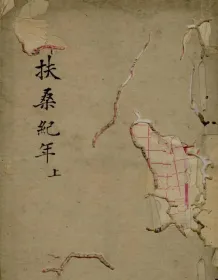 扶桑紀年 上